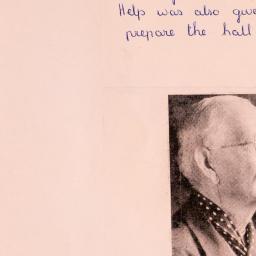 Help was also
prepare the hall